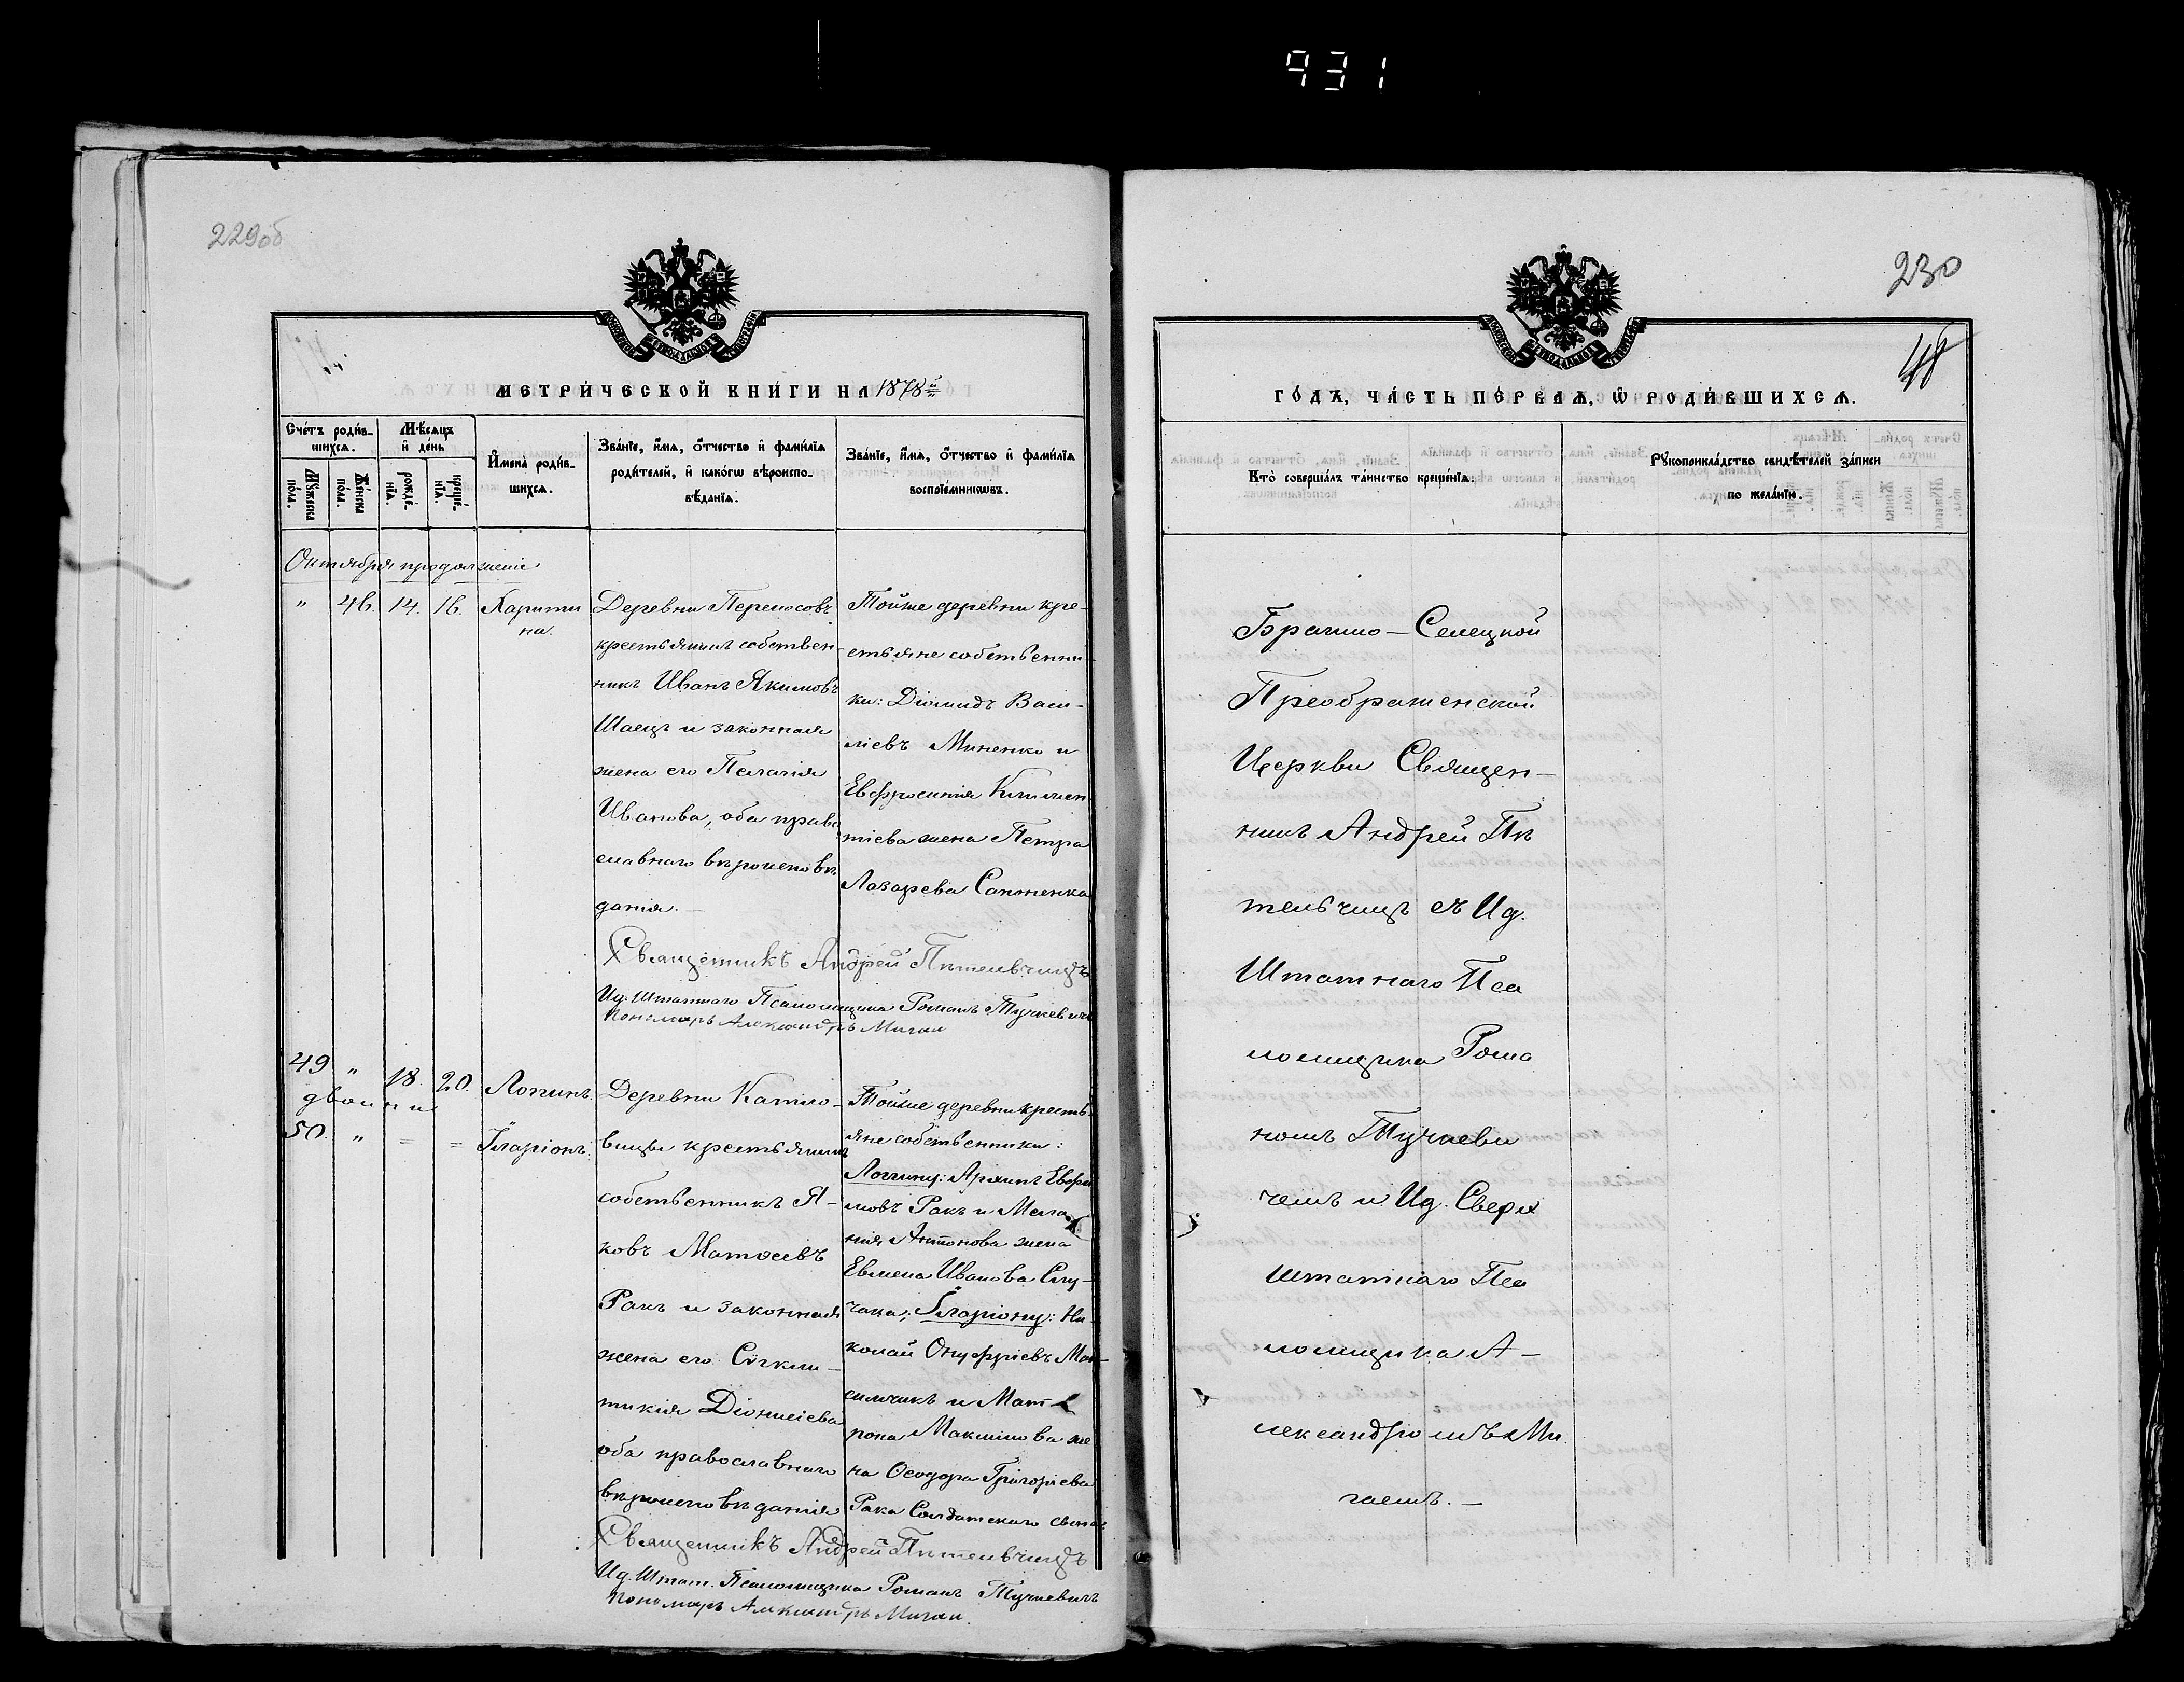 931
229об
МЕТРИ́ЧЕСКОЙ КНИ́ГИ НА 1878й
Сче́тъ роди́в-
шихся.
Мѣ́сяцъ
и҆ де́нь
Мꙋ́жеска по́ла.
Же́нска по́ла.
рожде́-
нїѧ.
креще́-
нїѧ.
И҆мена̀ роди́в-
шихсѧ.
Зва́нїе, и҆́мѧ, ѻ҆́тчество и҆ фами́лїѧ
роди́телей, и҆ како́гѡ вѣроиспо-
вѣ́данїѧ.
Зва́нїе, и҆́мѧ, ѻ҆́тчество и҆ фами́лїѧ
воспрїе́мникѡвъ.
Октября продолженіе
" 46. 14. 16. Харити
на.
Деревни Пересосовъ
крестьянинъ собствен-
никъ Иванъ Якимовъ
Шаецъ и законная
жена его Пелагія
Иванова, оба право
славнаго вѣроисповѣ
данія.—
Тойже деревни кре-
стьяне собственни-
ки: Діомидъ Васи-
ліевъ Миненко и
Евфросинія Климен
тіева жена Петра
Лазарева Сапоненка
Священникъ Андрей Пѣтельчицъ
Ид. Штатнаго Псаломщика Романъ Тучкевичъ
Пономарь Александръ Мигаи
49 " 18. 20. Логгинъ.
двойни
50. " = = Иларіонъ.
Деревни Катило-
вицы крестьянинъ
собственникъ Я-
ковъ Матѳеевъ
Ракъ и законная
жена его Сѵнкли-
тикія Діонисіева
оба православнаго
вѣроисповѣданія
Тойже деревни кресть-
яне собственники:
Логгину: Архипъ Евфи
мовъ Ракъ и Мела
нія Антонова жена
Евмена Иванова Слу-
чака; Иларіону: Ни-
колай Онуфріевъ Мак-
симчикъ и Мат-
рона Максимова же
на Ѳеодора Григоріева
Рака Солдатскаго сына.
Священникъ Андрей Пѣтельчицъ
Ид. Штат. Псаломщика Романъ Тучкевичъ
Пономарь Александръ Мигаи.
230
48
ГО́ДЪ, ЧА́СТЬ ПЕ́РВАѦ, Ѡ҆ РОДИ́ВШИХСѦ.
Кто̀ соверша́лъ та́инство креще́нїѧ.
Рꙋкоприкла́дство свидѣ́телей за́писи
по жела́нїю.
Брагино-Селецкой
Преображенской
Церкви Священ-
никъ Андрей Пѣ
тельчицъ съ Ид.
Штатнаго Пса
ломщика Рома
номъ Тучкеви
чемъ и Ид. Сверх
штатнаго Пса
ломщика А-
лександромъ Ми
гаемъ.—